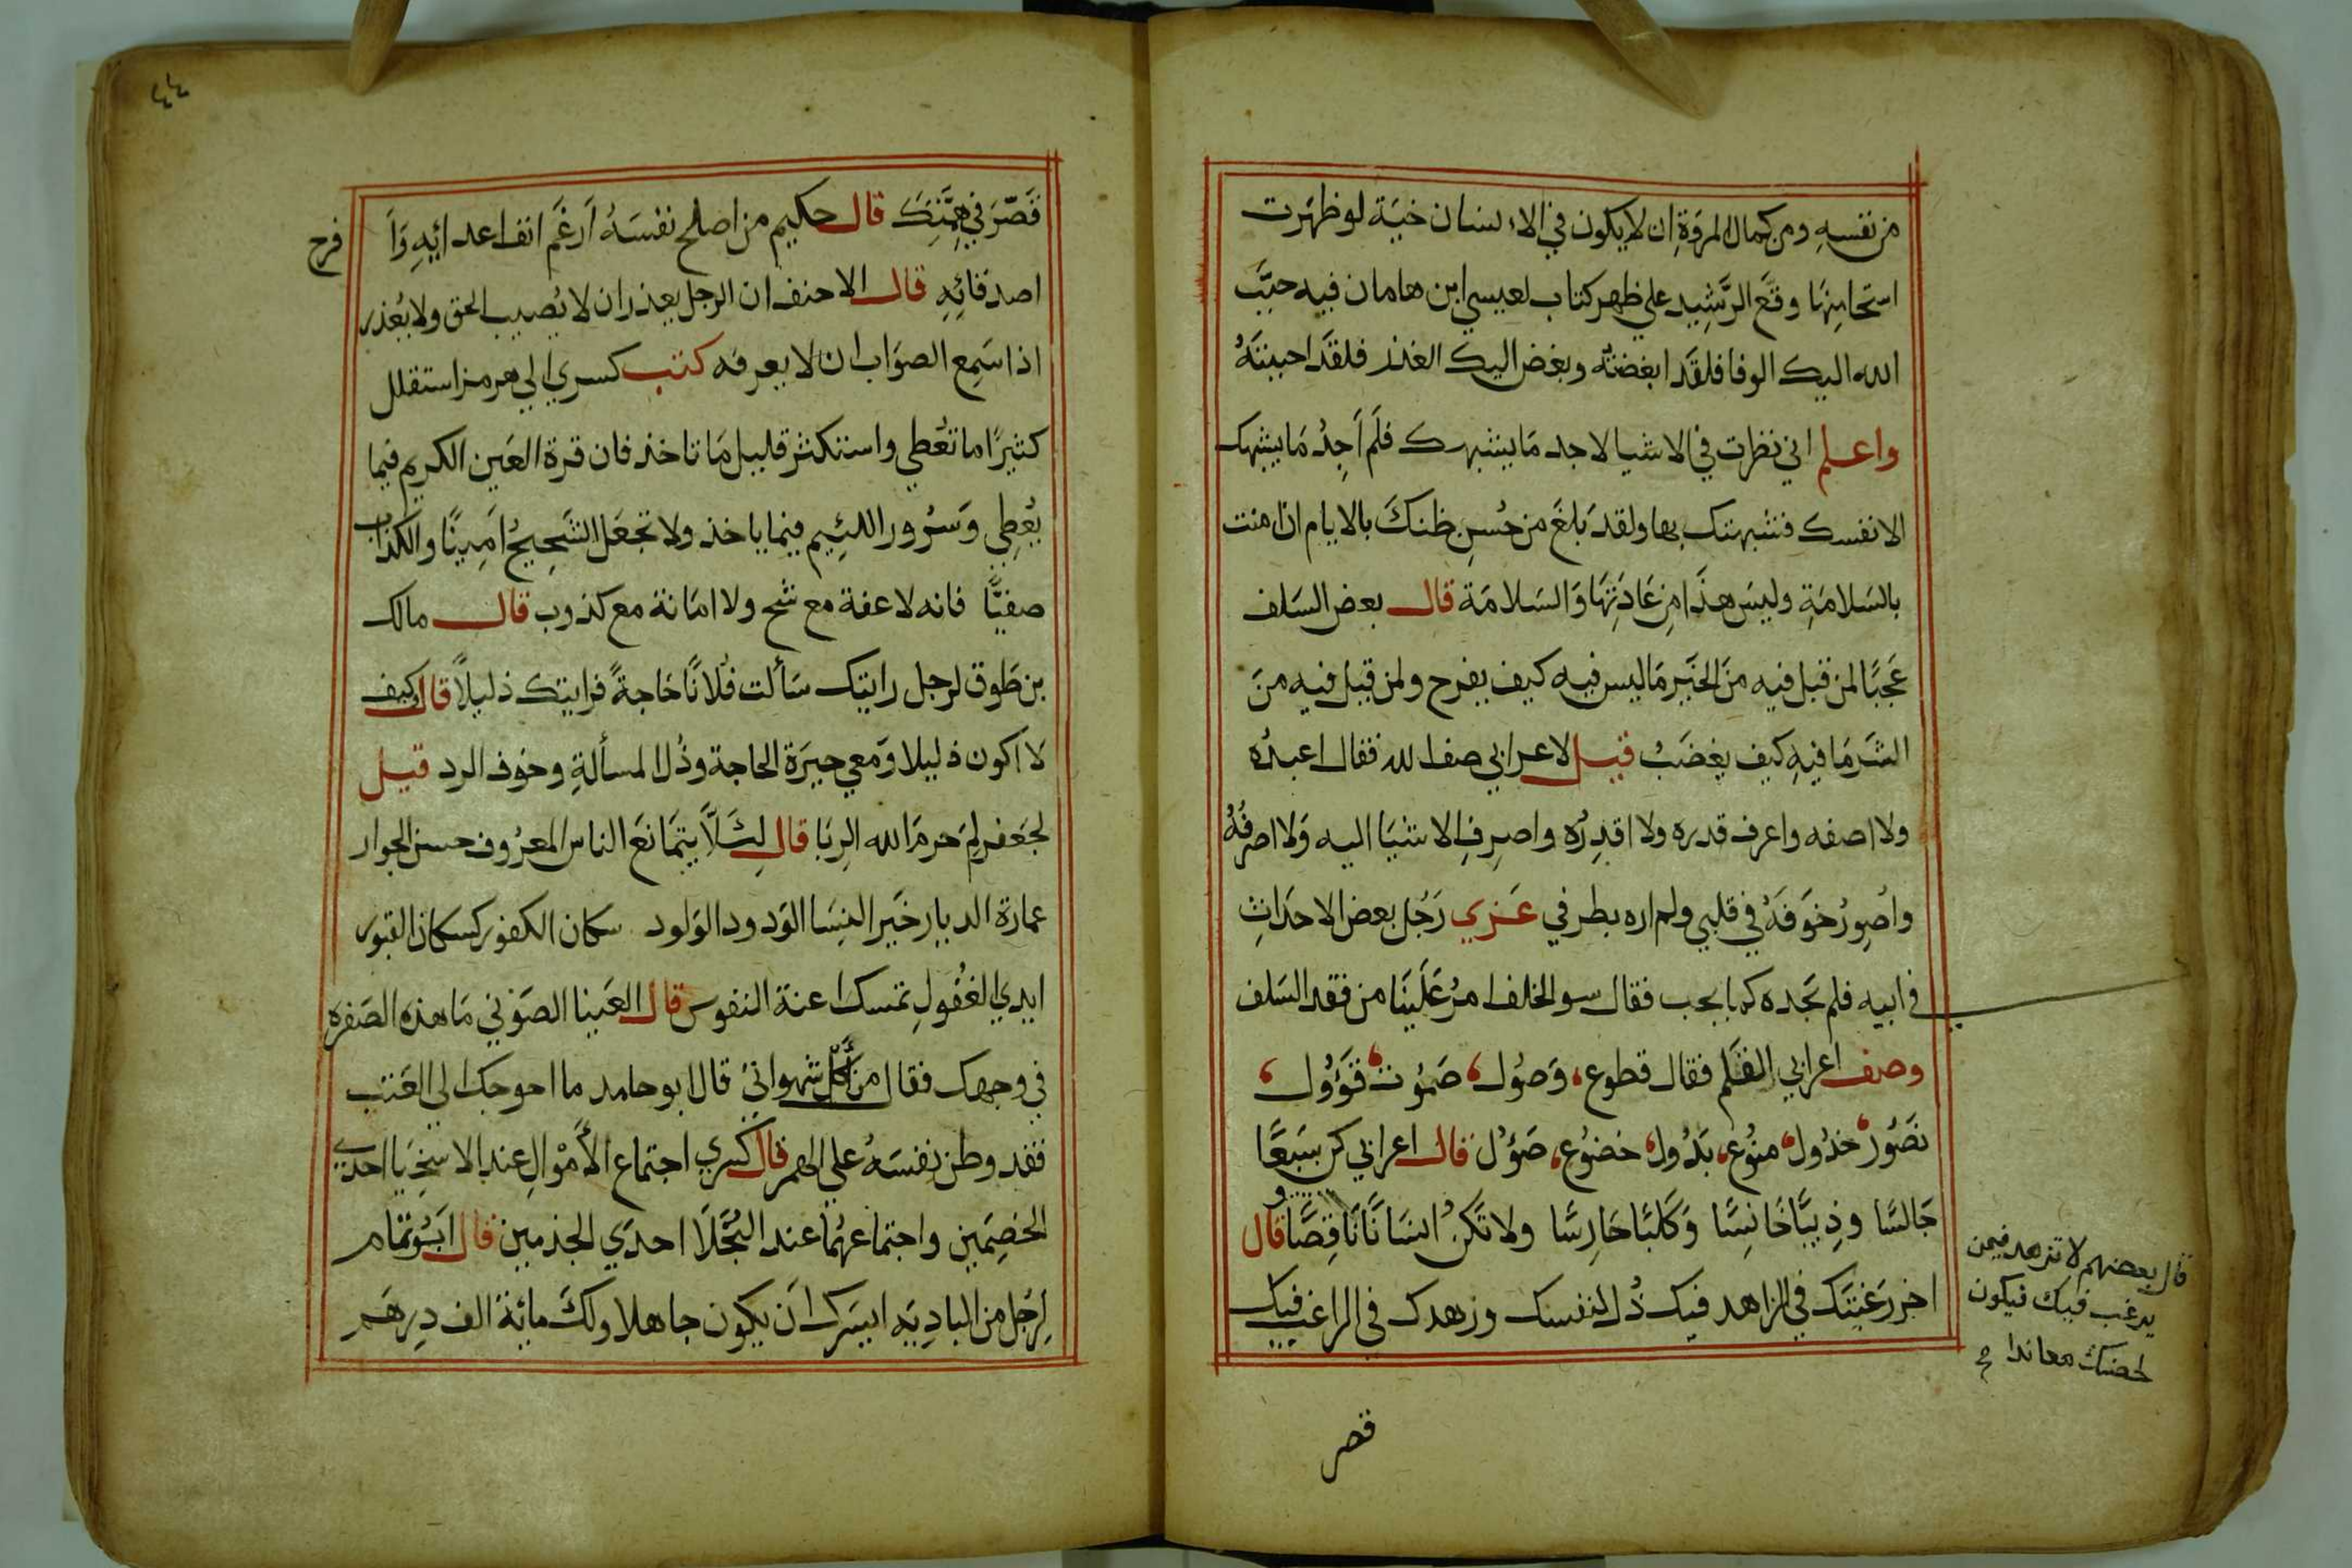 من نفسهِ ومن كمال المروّةِ ان لا يكون في الاء لسان خبيَة لو ظهَرت
استحامِنهَا وقَّع الرَّشِيد علي ظهر كتاب لعيسي ابن هامان فيه حبَّبَ
الله اليك الوفا فلقَد ابغضته وبغض اليك الغذر فلقَد احببتَهُ
واعلم اني نظرت في الاشيا لاجد مَا يشبهك فلَم اَجِدُ مَا يشبهك
الا نفسك فشبهتك بها ولقد بَلغَ من حُسنِ ظنكَ بالايام ان امنت
بالسَلامَةِ وليسَ هذَا مِن عَادَتِهَا وَالسَلامَة قال بعض السَلف
عَجَبًا لمن قيل فيه مَن الخَير مَا ليس فيه كيف يفرح ولمن قيل فيه منَ
الشَر مَا فيهِ كيف يغضَبُ قيل لاعرابي صف لله فقال اعبدُه
ولا اصفه واعرف قدره ولا اقدِرُه واصرِفِ الاشيَا اليه وَلا اصرفُهُ
واُصِورُ خوَفَهُ في قلبي ولم اره بطرفي عزي رَجُل بعض الاحدَاثِ
في ابيه فلم يجده كما يحب فقال سو الخلف امرُّ عَلَينَا من فقد السَلف
وصف اعرابي القلَم فقال قطوع، وَصُول، صَمُوت، قوَؤُول،
نصَوُر، خذُول، منُوع، بَذُول، خضُوع، صَؤُل قال اعرابي كن سَبعًا
جَالسًا وذِيبًا خَانِسًا وَكَلبًا حَارِسًا ولا تَكنُ انسَانًا نَاقِصًا قال
اخر رَغبتَك في الزاهد فيك ذُل لنفسك وزهدك في الراغب فيك
قال بعضهم لا تزهد فيمن
يرغب فيك فيكون
لحضك معاندا
قصر
٤٤
قَصّرَ في هِمَّتِكَ قال حكيم من اصلح نفسَهُ اَرغَم انف اعدائِهِ وَا
فرح
اصدقائِهِ قال الاحنف ان الرجل يعذر ان لا يُصيب الحق ولا يُعذر
اذا سَمِع الصوَاب ان لا يعرفه كتب كسري الي هرمز استقلل
كثيرًا ما تعُطي واستكثر قليل مَا تاخذ فان قرة العَين الكريم فيما
يُعطِي وَسرُور اللئِيم فيما ياخذ ولا تجعَل الشَحِيحُ اَمِينًا والكذاب
صفيًّا فانه لا عفة مع شح ولا امَانة مع كذوب قال مالك
بن طَوق لرجل رايتك سَألت فُلانًا حَاجةً فرايتك ذليلاً قال وكيف
لا اكون ذليلا وَمعي حيرَة الحاجة وذُل المسألةِ وخوف الرد قيل
لجعَفر لِمَ حرمَ الله الرِبَا قال لِئَلَّا يتمَانعَ الناس المعرُوف حسن الجوار
عمارة الديار خيَر النِسَا الوَدود الوَلود سكان الكفور كسكان القبور
ايدي العُقولِ تمسك اعنة النفوس قال العَينا الصَوفي مَا هذه الصَفرهِ
في وجهك فقال من أكل شهواتي قال ابو حامد ما احوجك الي العَتب
فقد وطن نفسَهُ علي الهم قال كسري اجتماع الأَموْالِ عند الاسخِيَا احدي
الخصبَين واجتماعهُمَا عند البُخَلَا احدَي الجذبين قال ابَوُ تمَّام
لِرجَل من البادِيَه ايسَرك اَن يكون جاهلا ولكَ مائة الف دِرهَم